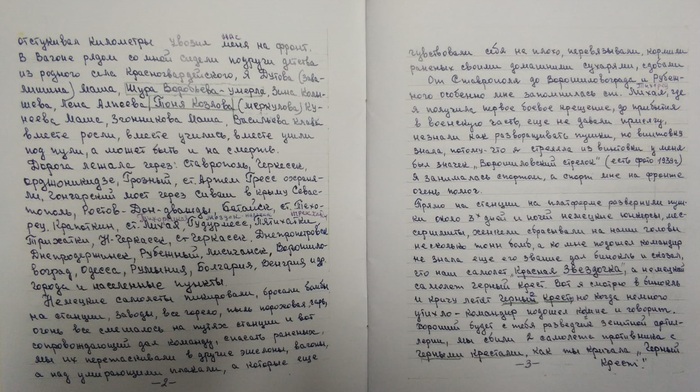 отстукивая километры увозил нас
меня на фронт.
В вагоне рядом со мной сидели подруги детства
из родного села Красногвардейского, я Дутова (Зава-
лишина) Маша, Шура Воробьева-умерла, Зина Колы-
шева, Лена Алисова, Тоня Козлова (Меркулова) Ку-
неева Маша, Маша, Васильева Клава
вместе росли, вместе учились, вместе ушли
под пули, а может быть и на смерть.
Дорога лежала через: Ставрополь, Черкесск,
Орджоникидзе, Грозный, ст. охраня-
ли, Гончарский мост через Сиваш в Крыму Севас-
тополь, Ростов-Дон-дважды, Батайск, ст. Тихо-
рец, Кропоткин, ст. Лихая Гудермес, Пятихатки,
Н-Черкасск, ст-Черкасск, Днепропетровск
Днепродзержинск, Рубежный, Лисичанск, Ворошило-
воград, Одесса, Румыния, Болгария, Венгрия и др.
города и населенные пункты.
Немецкие самолеты пикировали, бросали бомбы
на станции, заводы, все горело, пыль пороховая, гарь,
огонь все смешалось на путях станции и вот
сопровождающий дал команду, спасать раненых,
мы их перетаскивали в другие эшелоны, вагоны,
а над умирающими плакали, а которые еще
-2-
чувствовали себя не плохо, перевязывали, кормили
раненых своими домашними сухарями, сдобами.
От Ставрополя до Ворошиловграда и Рубеж-
ного особенно мне запомнилась ст. Тихорец, где
я получила первое боевое крещение, до прибытия
в воинскую часть, еще не давали присягу,
незнали как разворачивать пушки, но винтовку
знала, потому-что я стреляла из винтовки у меня
был значек "Ворошиловский стрелок" (есть фото 1938г)
Я занималась спортом, а спорт мне на фронте
очень помог.
Прямо на станции на платформе развернули пуш-
ки около 3х дней и ночей немецкие юнкерсы, мес-
сершмиты, хенкели сбрасывали на наши головы
несколько тонн бомб, а ко мне подошел командир
не знала еще его звание дал бинокль и сказал,
что наш самолет "Красная Звездочка", а немецкий
самолет черный крест. Вот я смотрю в бинокль
и кричу летат Черный Крест, но когда немного
утихло - Командир подошел ко мне и говорит.
Хороший будет с тебя разведчик зенитной артил-
лерии, мы сбили 2 самолета противника с
Черными Крестами, как ты кричала "Черный
Крест"!
-3-